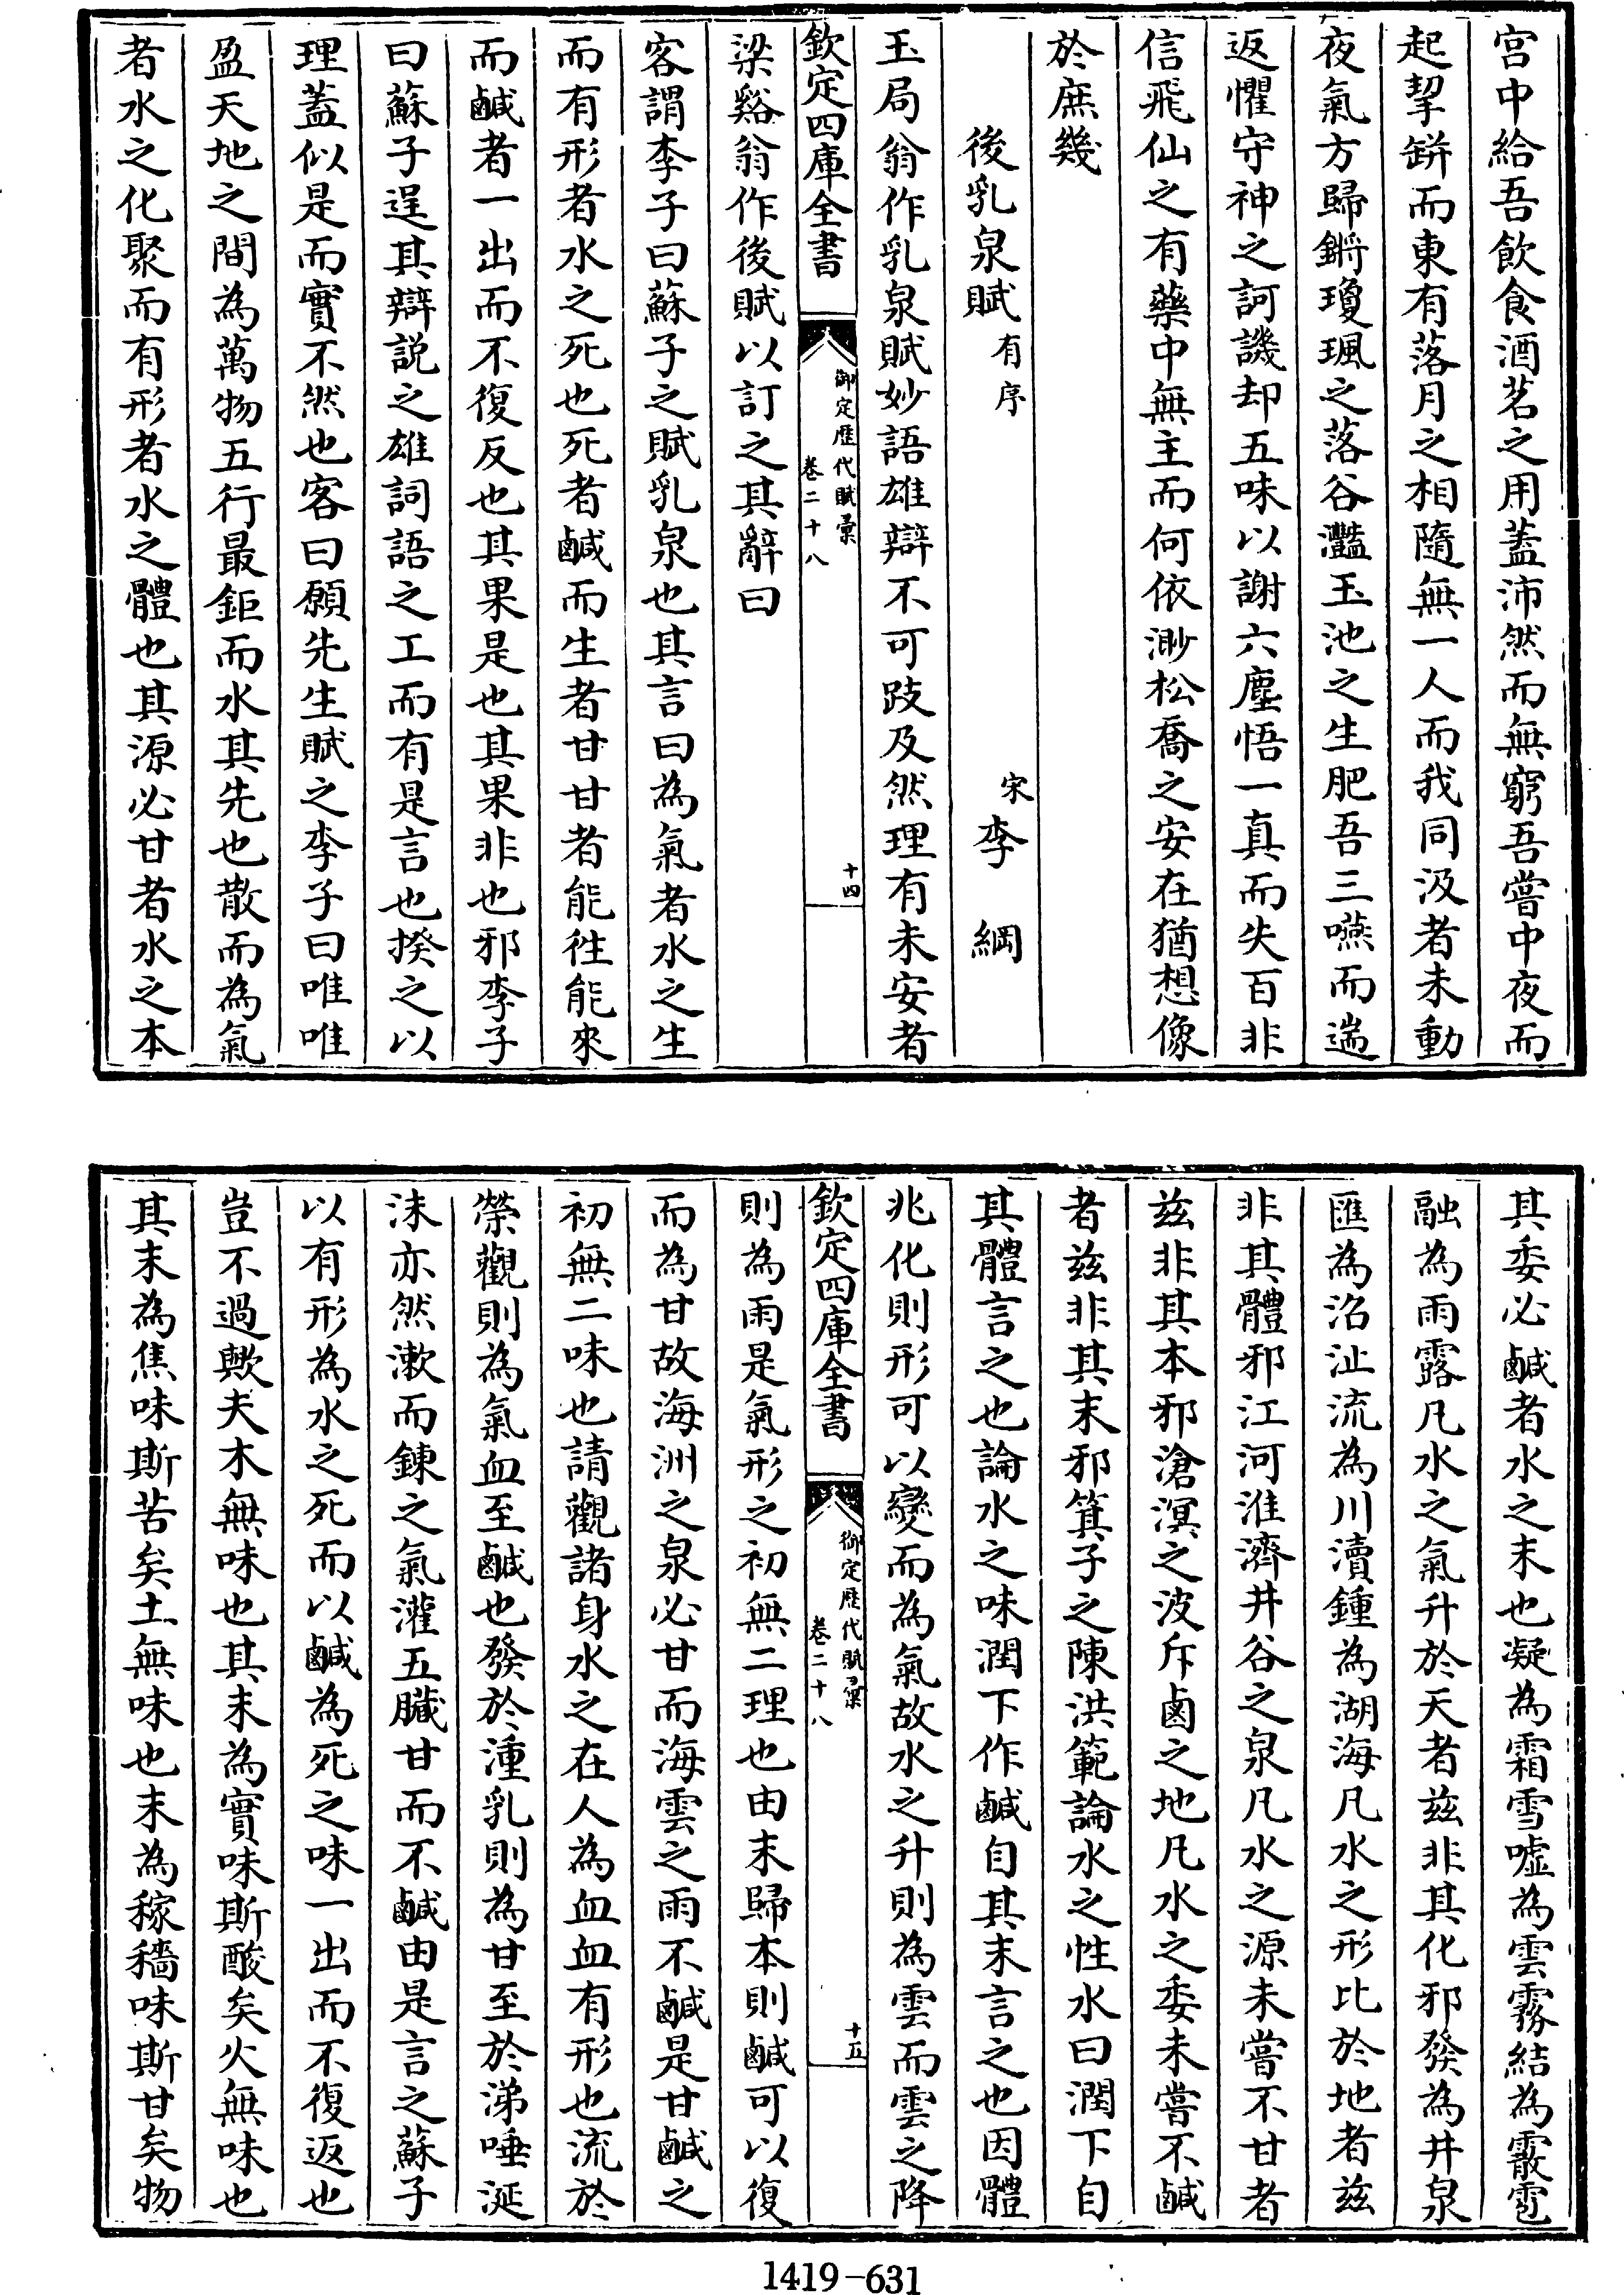 宫中給吾飲食酒茗之用葢沛然而無窮吾嘗中夜而
起挈缾而東有落月之相隨無一人而我同汲者未動
夜氣方歸鏘瓊珮之落谷灩玉池之生肥吾三嚥而遄
返懼守神之訶譏却五味以謝六塵悟一真而失百非
信飛仙之有藥中無主而何依渺松喬之安在猶想像
於庶幾
後乳泉賦有序 宋李綱
玉局翁作乳泉賦妙語雄辯不可跂及然理有未安者
欽定四庫全書 御定歴代賦彚 卷二十八 十四
梁谿翁作後賦以訂之其辭曰
客謂李子曰蘇子之賦乳泉也其言曰為氣者水之生
而有形者水之死也死者鹹而生者甘甘者能徃能來
而鹹者一出而不復反也其果是也其果非也邪李子
曰蘇子逞其辯説之雄詞語之工而有是言也揆之以
理葢似是而實不然也客曰願先生賦之李子曰唯唯
盈天地之間為萬物五行最鉅而水其先也散而為氣
者水之化聚而有形者水之體也其源必甘者水之本
其委必鹹者水之末也凝為霜雪嘘為雲霧結為霰雹
融為雨露凡水之氣升於天者兹非其化邪發為井泉
匯為沼沚流為川瀆鍾為湖海凡水之形比於地者兹
非其體邪江河淮濟井谷之泉凡水之源未嘗不甘者
兹非其本邪滄溟之波斥鹵之地凡水之委未嘗不鹹
者兹非其末邪箕子之陳洪範論水之性水曰潤下自
其體言之也論水之味潤下作鹹自其末言之也因體
兆化則形可以變而為氣故水之升則為雲而雲之降
欽定四庫全書 御定歴代賦彚 卷二十八 十五
則為雨是氣形之初無二理也由末歸本則鹹可以復
而為甘故海洲之泉必甘而海雲之雨不鹹是甘鹹之
初無二味也請觀諸身水之在人為血血有形也流於
榮觀則為氣血至鹹也發於湩乳則為甘至於涕唾涎
沫亦然漱而鍊之氣灌五臟甘而不鹹由是言之蘇子
以有形為水之死而以鹹為死之味一出而不復返也
豈不過歟夫木無味也其末為實味斯酸矣火無味也
其末為焦味斯苦矣土無味也末為稼穡味斯甘矣物
1419-631